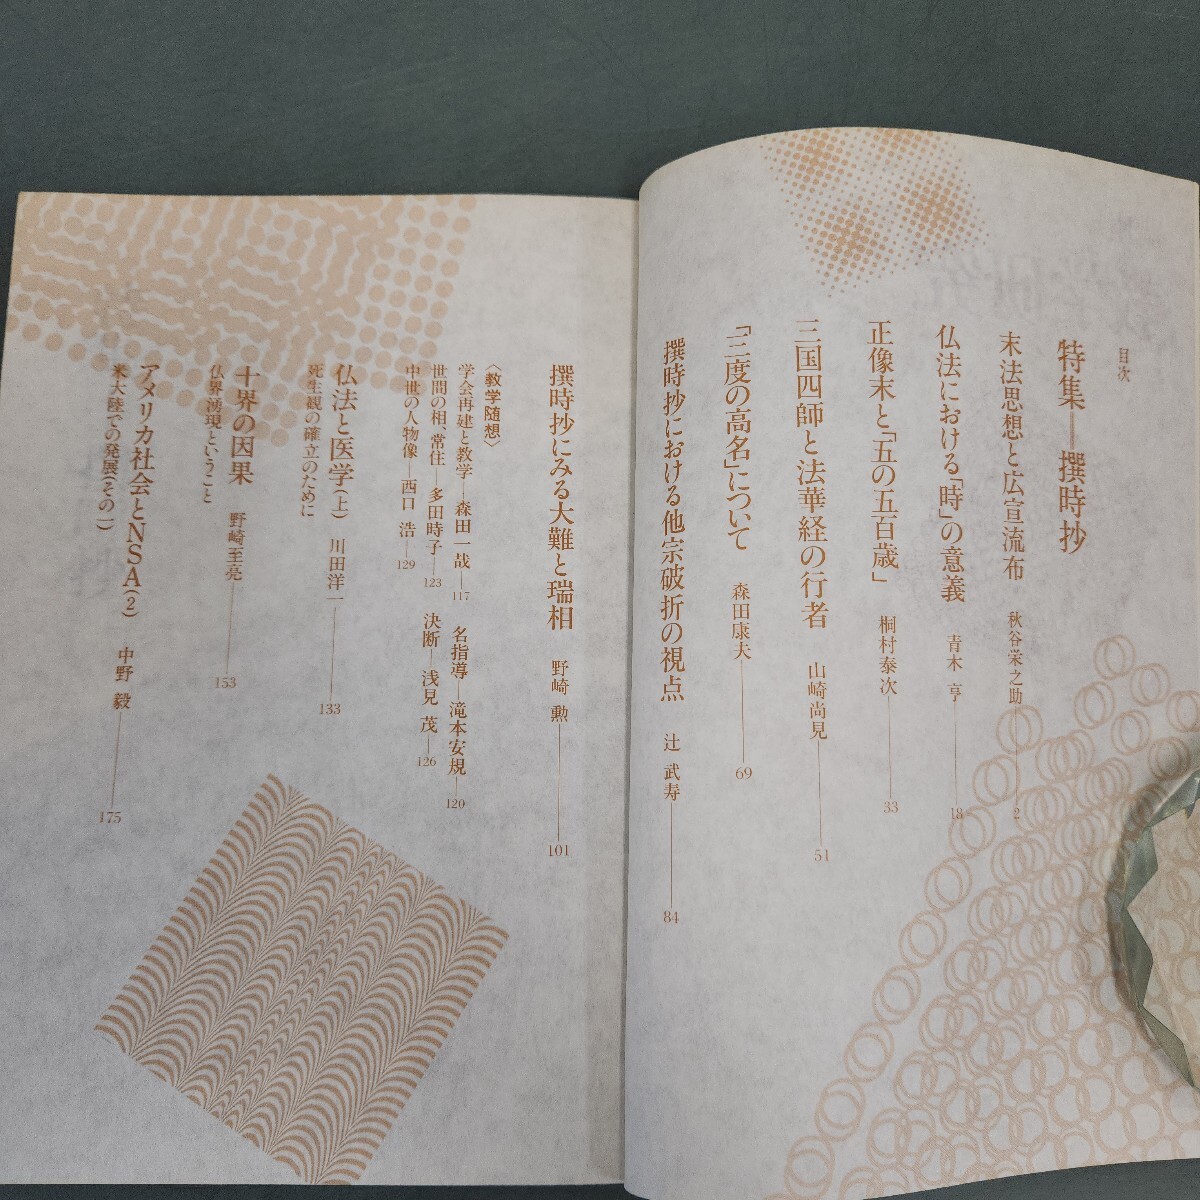 目次
特集──撰時抄
末法思想と広宣流布 秋谷栄之助──2
仏法における「時」の意義 青木 亨──18
正像末と「五の五百歳」 桐村泰次──33
三国四師と法華経の行者 山崎尚見──51
「三度の高名」について 森田康夫──69
撰時抄における他宗破折の視点 辻 武寿──84
撰時抄にみる大難と瑞相 野崎 勲──101
〈教学随想〉
学会再建と教学──森田一哉──117 名指導──滝本安規──120
世間の相、常住──多田時子──123 決断──浅見 茂──126
中世の人物像──西口 浩──129
仏法と医学(上) 川田洋一──133
死生観の確立のために
十界の因果 野崎至亮──153
仏界湧現ということ
アメリカ社会とNSA(2) 中野 毅──175
米大陸での発展(その一)